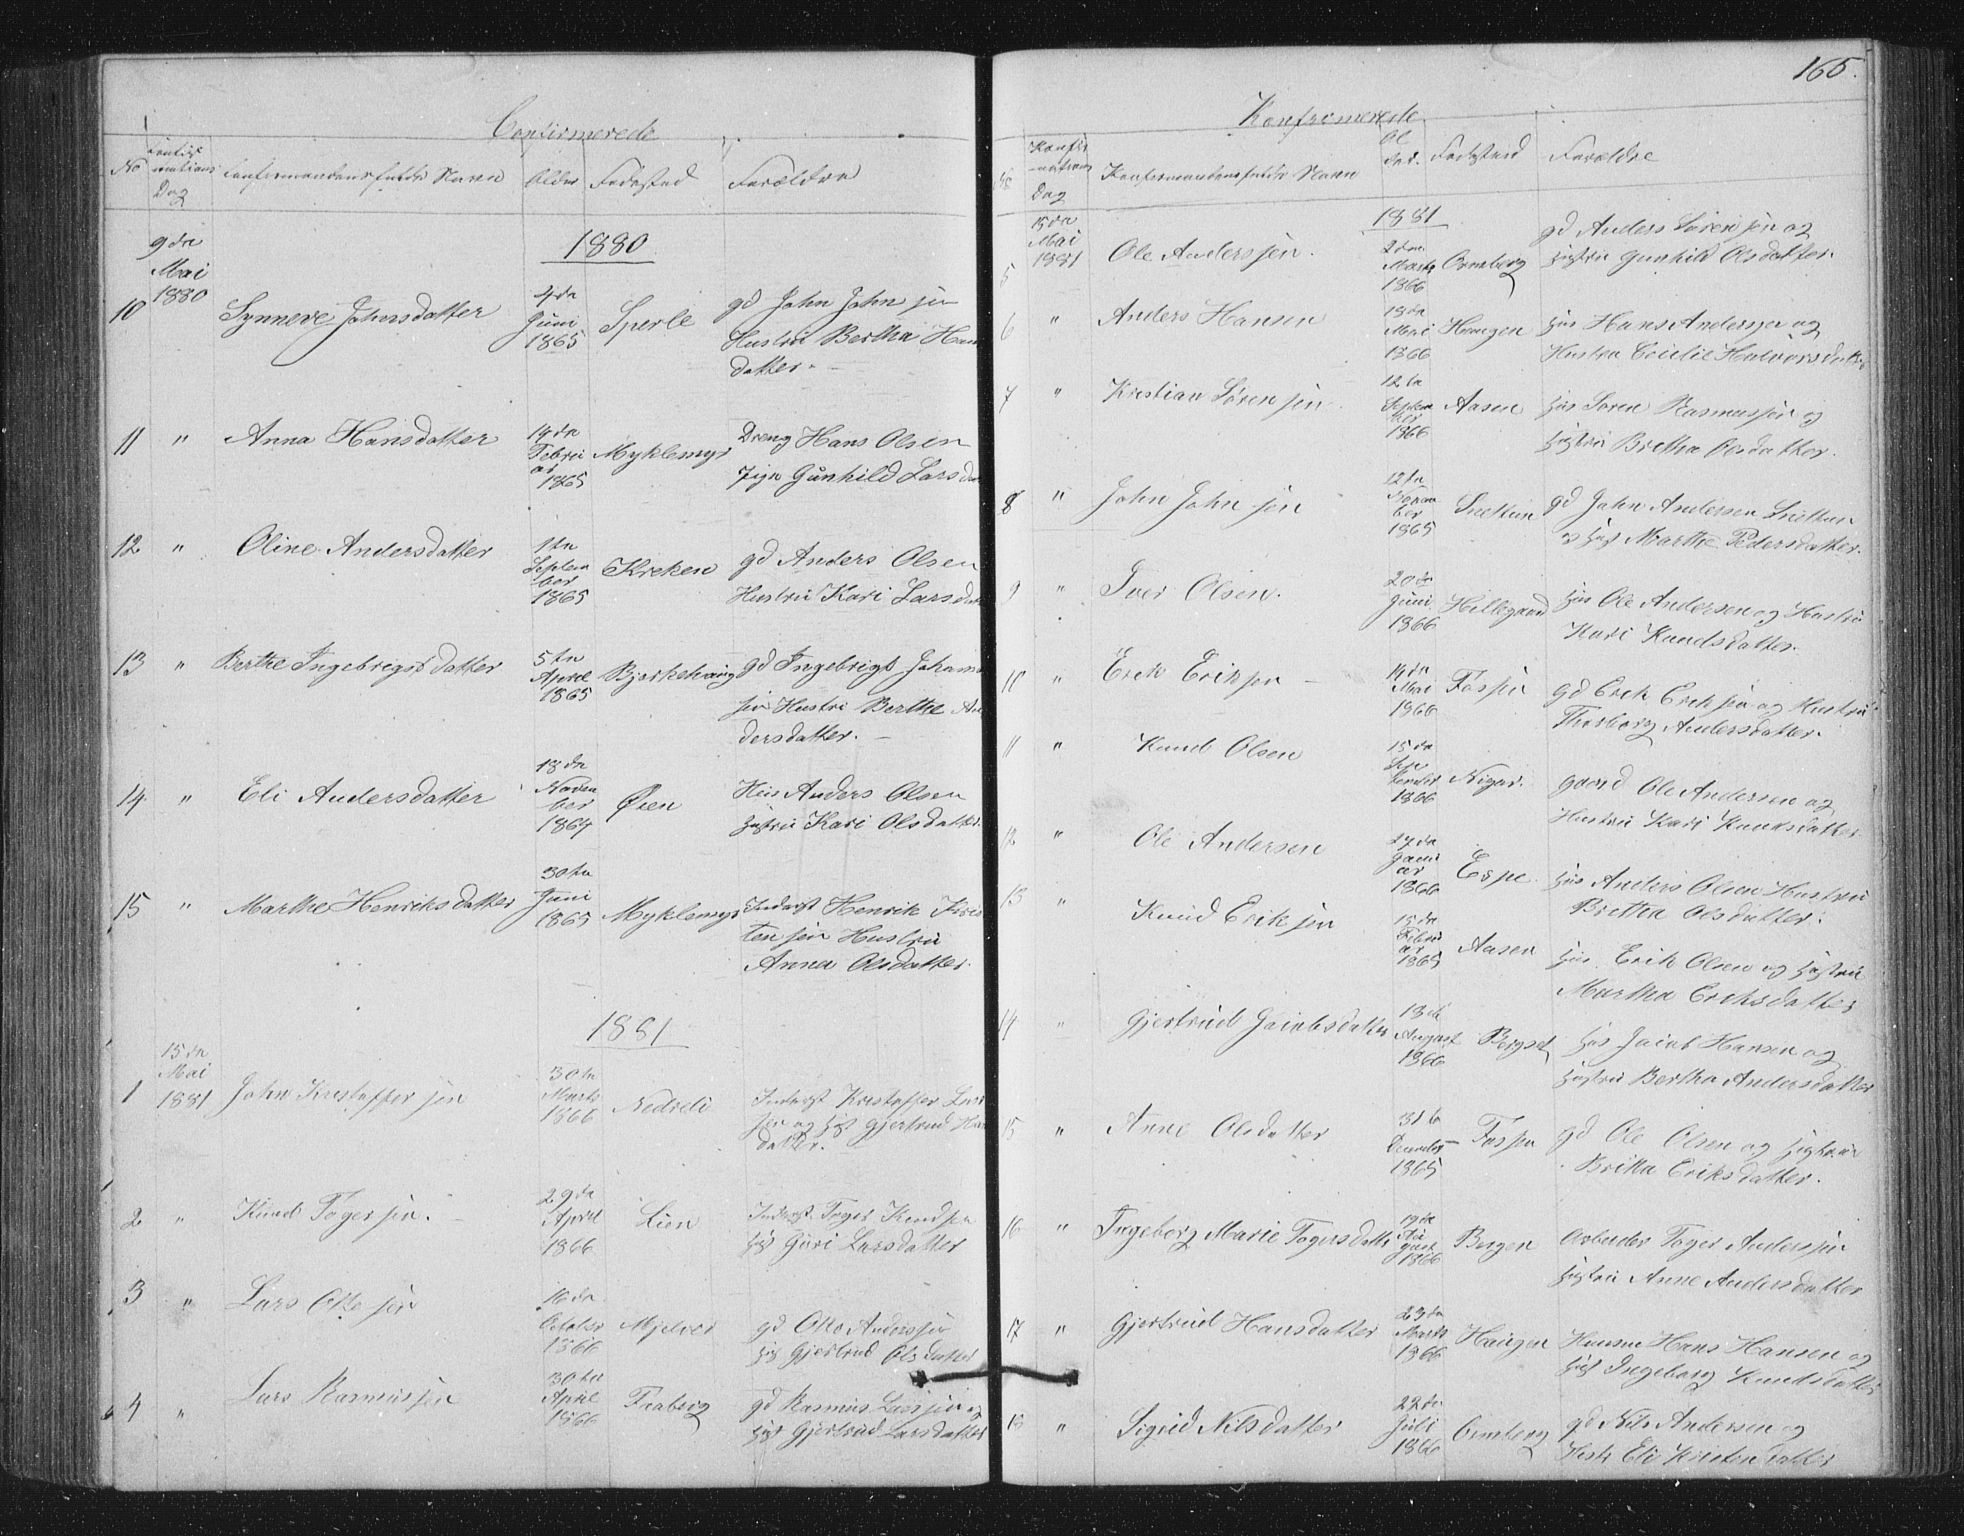 Confirmerede
No
Dag
Alder
Fødested
Forældre
1880
9de
Mai
1880
10 Synneve Johnsdatter 4de Juni 1865 Sperle gd John Johnsen
Hustru Bertha Hans
datter
11 " Anna Hansdatter 14de Februar 1865 Myklemyr Dreng Hans Olsen
Pige Gunhild Lars
12 " Oline Andersdatter 1te September 1865 Kreken gd Anders Olsen
Hustru Kari Lars
13 " Berthe Ingebrigtsdatter 5te April 1865 Bjørkehaug gd Ingebrigt Johann
sen Hustru Berthe An
dersdatter.
14 " Eli Andersdatter 18de November 1864 Øien Hus Anders Olsen
Hustru Kari Olsdatter
15 " Marthe Henriksdatter 30te Juni 1865 Myklemyr Inderst Henrik Kris
tensen Hustru
Anna Olsdatter.
1881
15de
Mai
1881
1 John Kristoffersen 30te Marts 1866 Nedreli Inderst Kristoffer Lar
sen og Hust Gjertrud Han
datter.
2 " Knud Togersen. 29de April 1866 Lien Inderst Toger Knudsen
Hust Guri Larsdatter
3 " Lars Ottesen 16de October 1866 Mjelver gd Otto Anderssen
Hust Gjertrud Olsdatter
4 " Lars Rasmussen 30te April 1866 Faaberg gd Rasmus Larssen og
Hust Gjertrud Larsdatter
165.
Konfirmerede
Dag
Fødested
Forældre
1881
15de
Mai
1881
5 Ole Anderssen. 2den Marts 1866 Ormberg gd Anders Sørensen og
Hustru Gunhild Olsdatter
6 " Anders Hansen 18de Mai 1866 Haugen Hus Hans Andersen og
Hustru Cecilie Halvorsdatter
7 " Kristian Sørensen 12te September 1866 Aasen Hus Søren Rasmussen og
Hustru Bretha Olsdatter.
8 " John Johnsen 12te November 1865 Snettun gd John Andersen Snettun
og Hust Marthe Pedersdatter.
9 " Iver Olsen. 20de Juni 1866 Hillegaard Hus Ole Andersen og Hustru
Kari Knudsdatter.
10 " Erik Eriksen 14de Mai 1866 Fossen gd Erik Eriksen og Hustru
Thorborg Andersdatter.
11 " Knud Olsen 15de September 1866 Nigar. gaard Ole Andersen og
Hustru Kari Knudsdatter
12 " Ole Andersen 27de Januar 1866 Espe Hus Anders Olsen Hustru
Bretha Olsdatter.
13 " Knud Eriksen 15de Februar 1865 Aasen Hus Erik Olsen og Hustru
Martha Eriksdatter
14 " Gjertrud Jacobsdatter 18de August 1866 Bergset Hus Jacob Hansen og
Hustru Bertha Andersdatter
15 " Anne Olsdatter 31te December 1865 Fossen gd Ole Olsen og Hustru
Britha Eriksdatter.
16 " Ingeborg Marie Togersdatter 19de August 1866 Bergen Arbeider Toger Anderssen
Hustru Anne Andersdatter
17 " Gjertrud Hansdatter 23de Marts 1866 Haugen Husm Hans Hansen og
Hust Ingeborg Knudsdatter
18 " Sigrid Nilsdatter 22de Juli 1866 Ormberg gd Nils Andersen og
Hustr Eli Kristensdatter